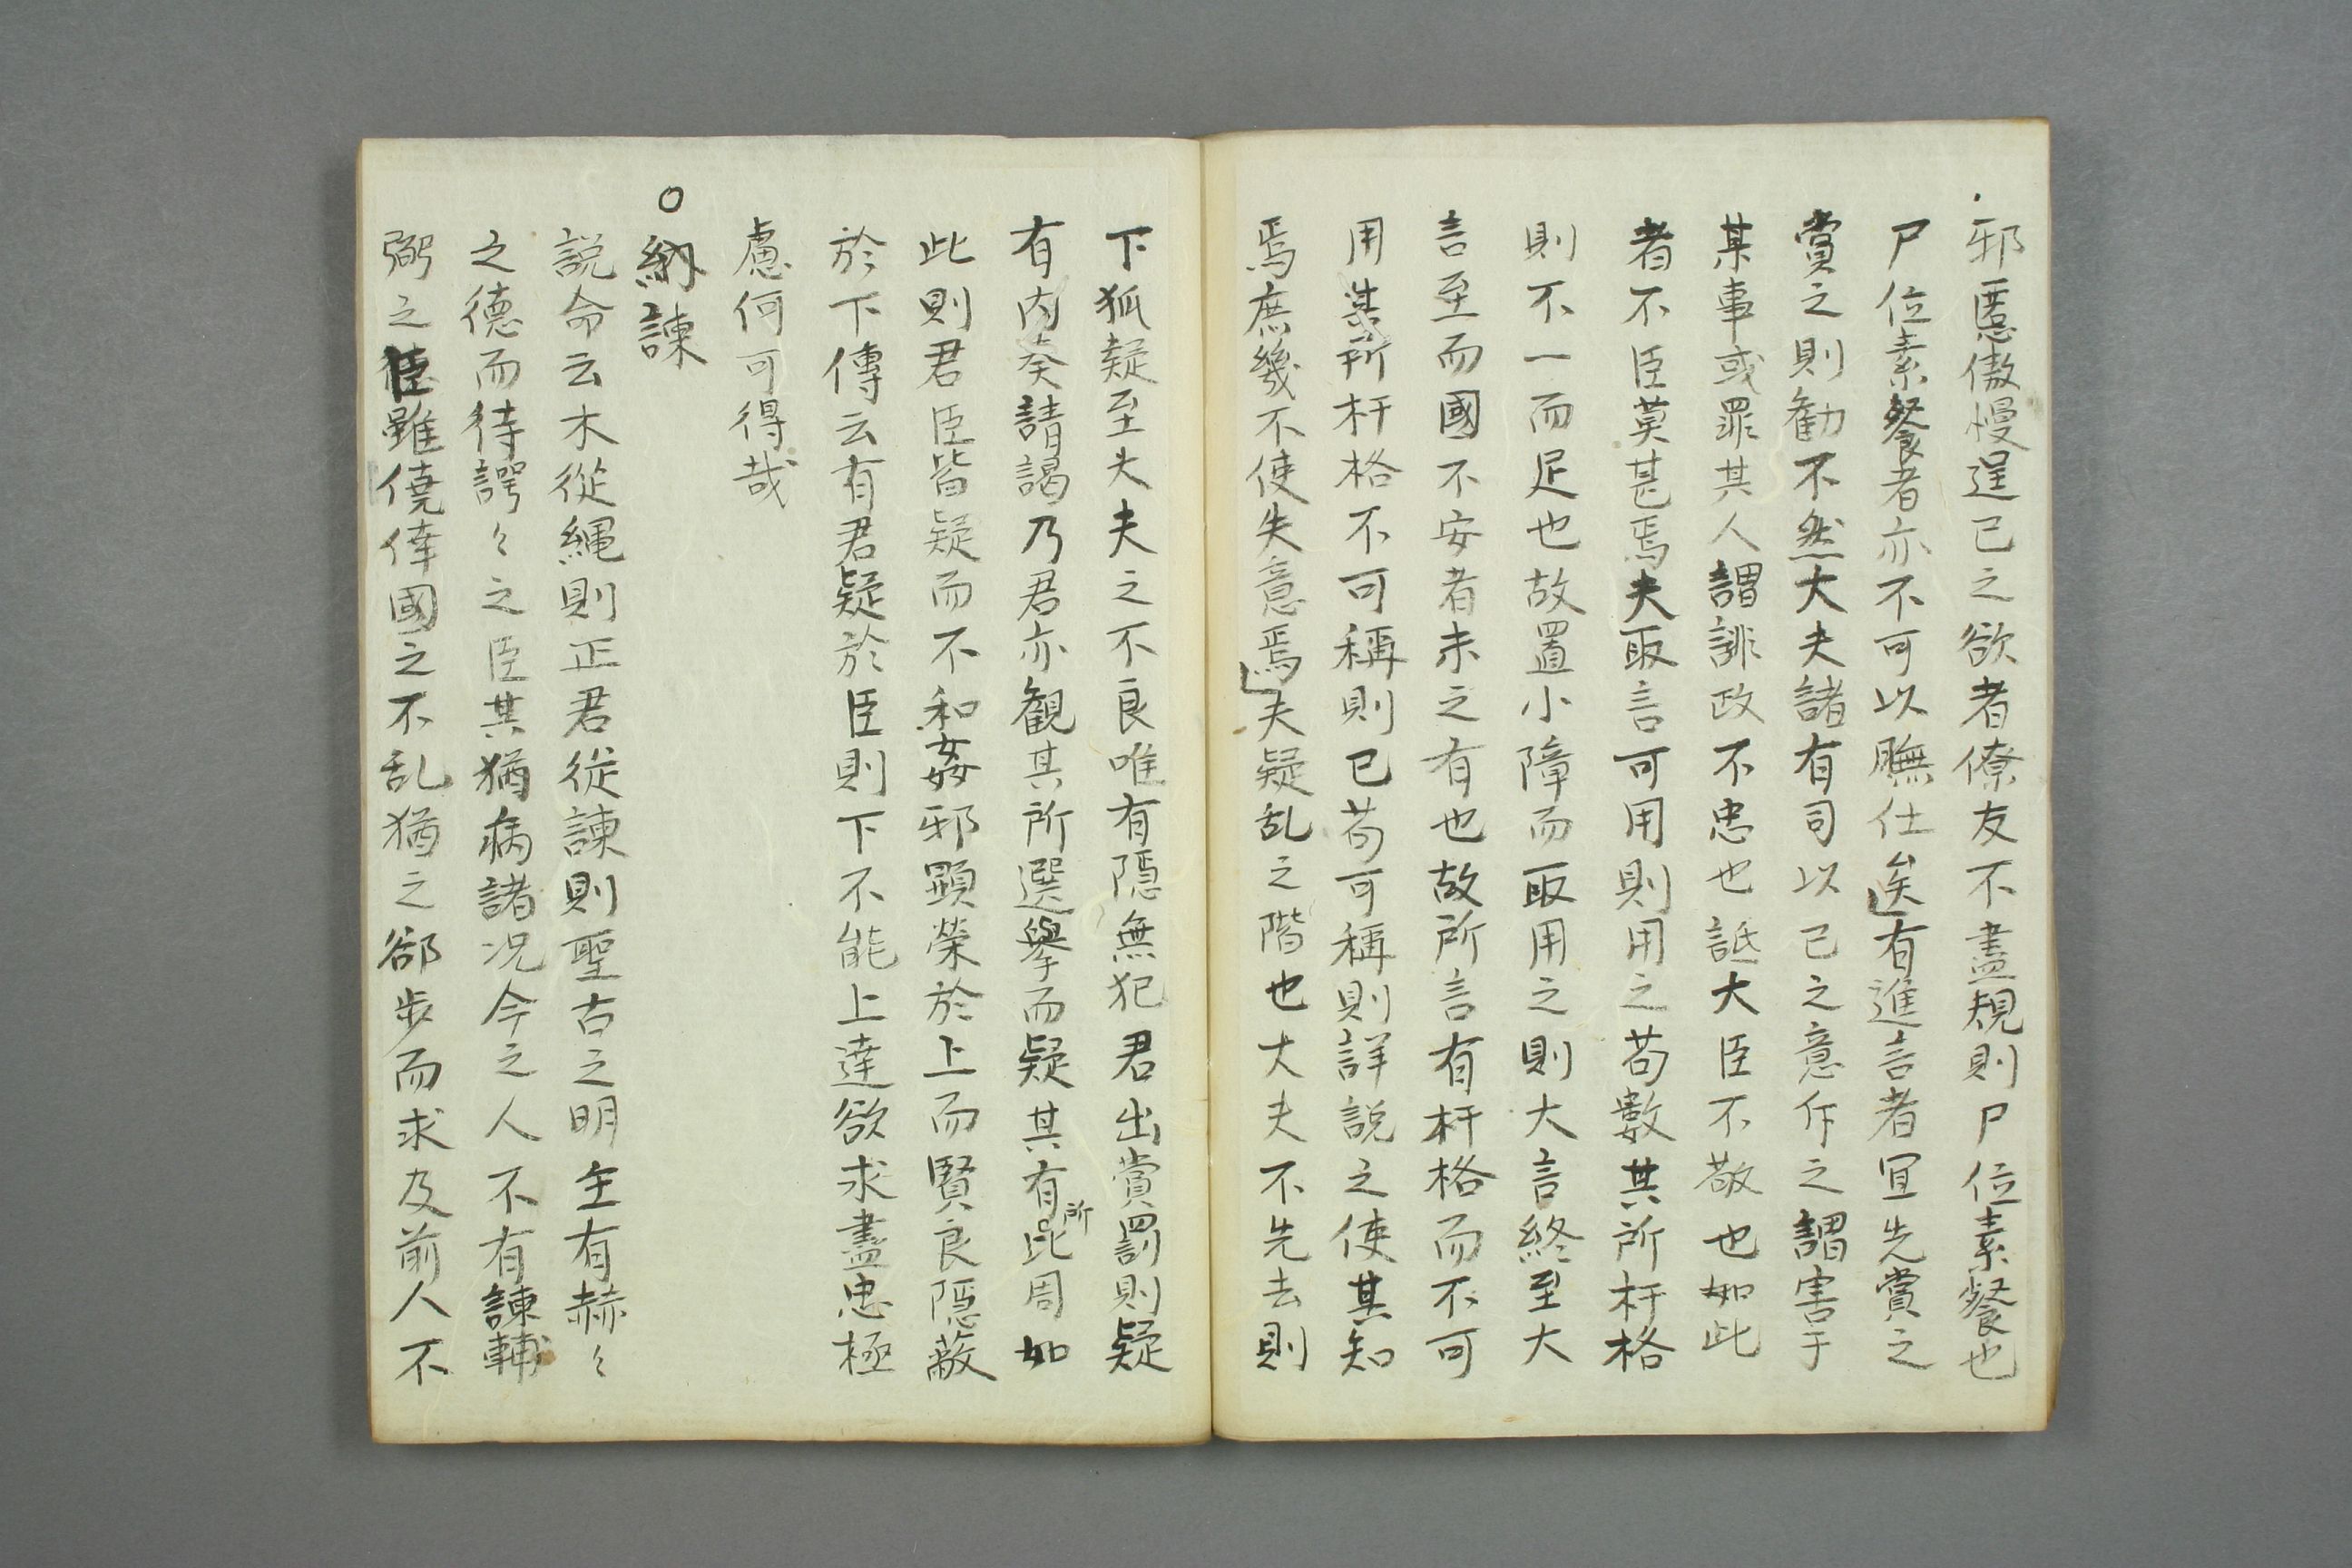 邪慝傲慢逞己之欲者僚友不盡規則尸位素餐也
尸位素餐者亦不可以膴仕矣有進言者宜先賞之
賞之則勧不然大夫諸有司以己之意斥之謂害于
某事或罪其人謂誹政不忠也詆大臣不敬也如此
者不臣莫甚焉夫取言可用則用之苟數其所杆格
則不一而足也故置小障而取用之則大言終至大
言至而國不安者未之有也故所言有杆格而不可
用其所杆格不可稱則已苟可稱則詳説之使其知
焉庶幾不使失意焉夫疑乱之階也大夫不先去則
下狐疑至大夫之不良唯有隠無犯君出賞罰則疑
有内奏請謁乃君亦観其所選擧而疑其有所比周如
此則君臣皆疑而不和姦邪顕榮於上而賢良隠蔽
於下傳云有君疑於臣則下不能上達欲求盡忠極
慮何可得哉
○納諫
説命云木從縄則正君從諫則聖古之明主有赫〻
之德而待諤〻之臣其猶病諸况今之人不有諫輔
弼之臣雖僥倖國之不乱猶之郤步而求及前人不